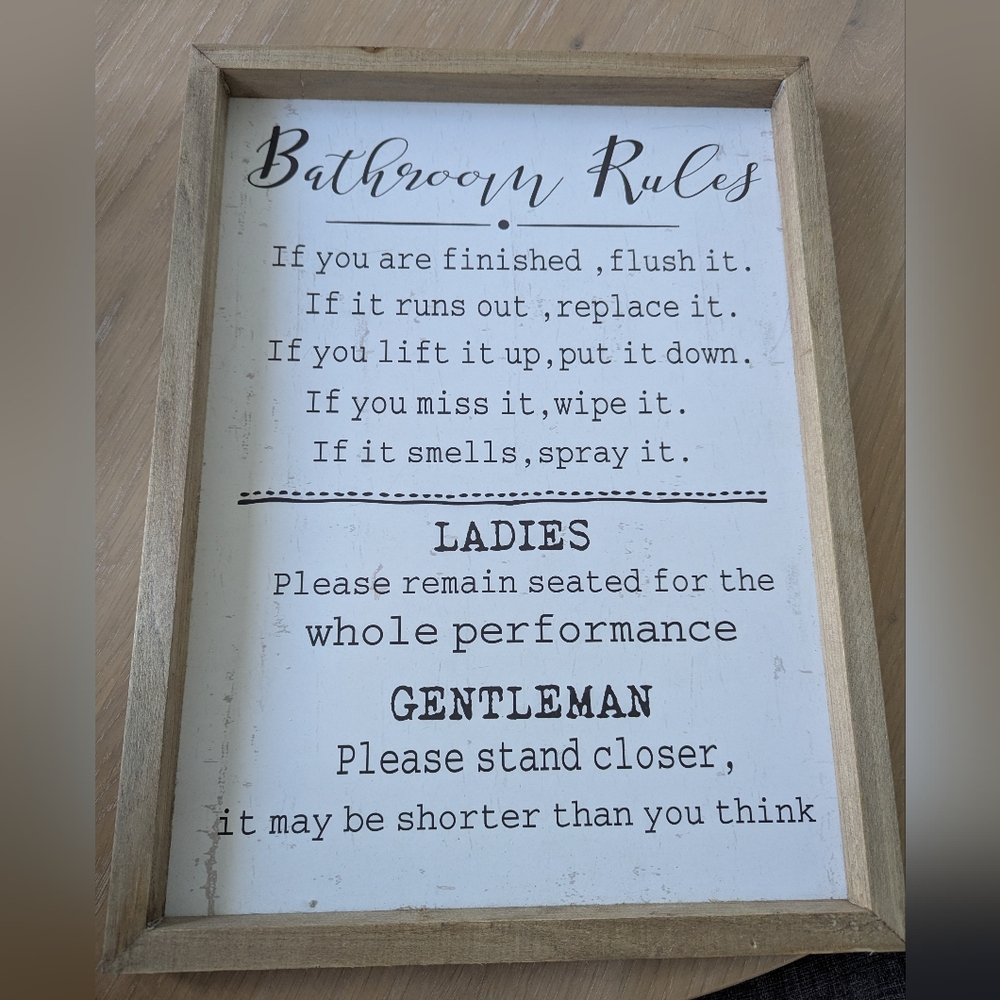 Bathroom Rules
If you are finished ,flush it.
If it runs out ,replace it.
If you lift it up,put it down.
If you miss it,wipe it.
If it smells,spray it.
LADIES
Please remain seated for the
whole performance
GENTLEMAN
Please stand closer,
it may be shorter than you think